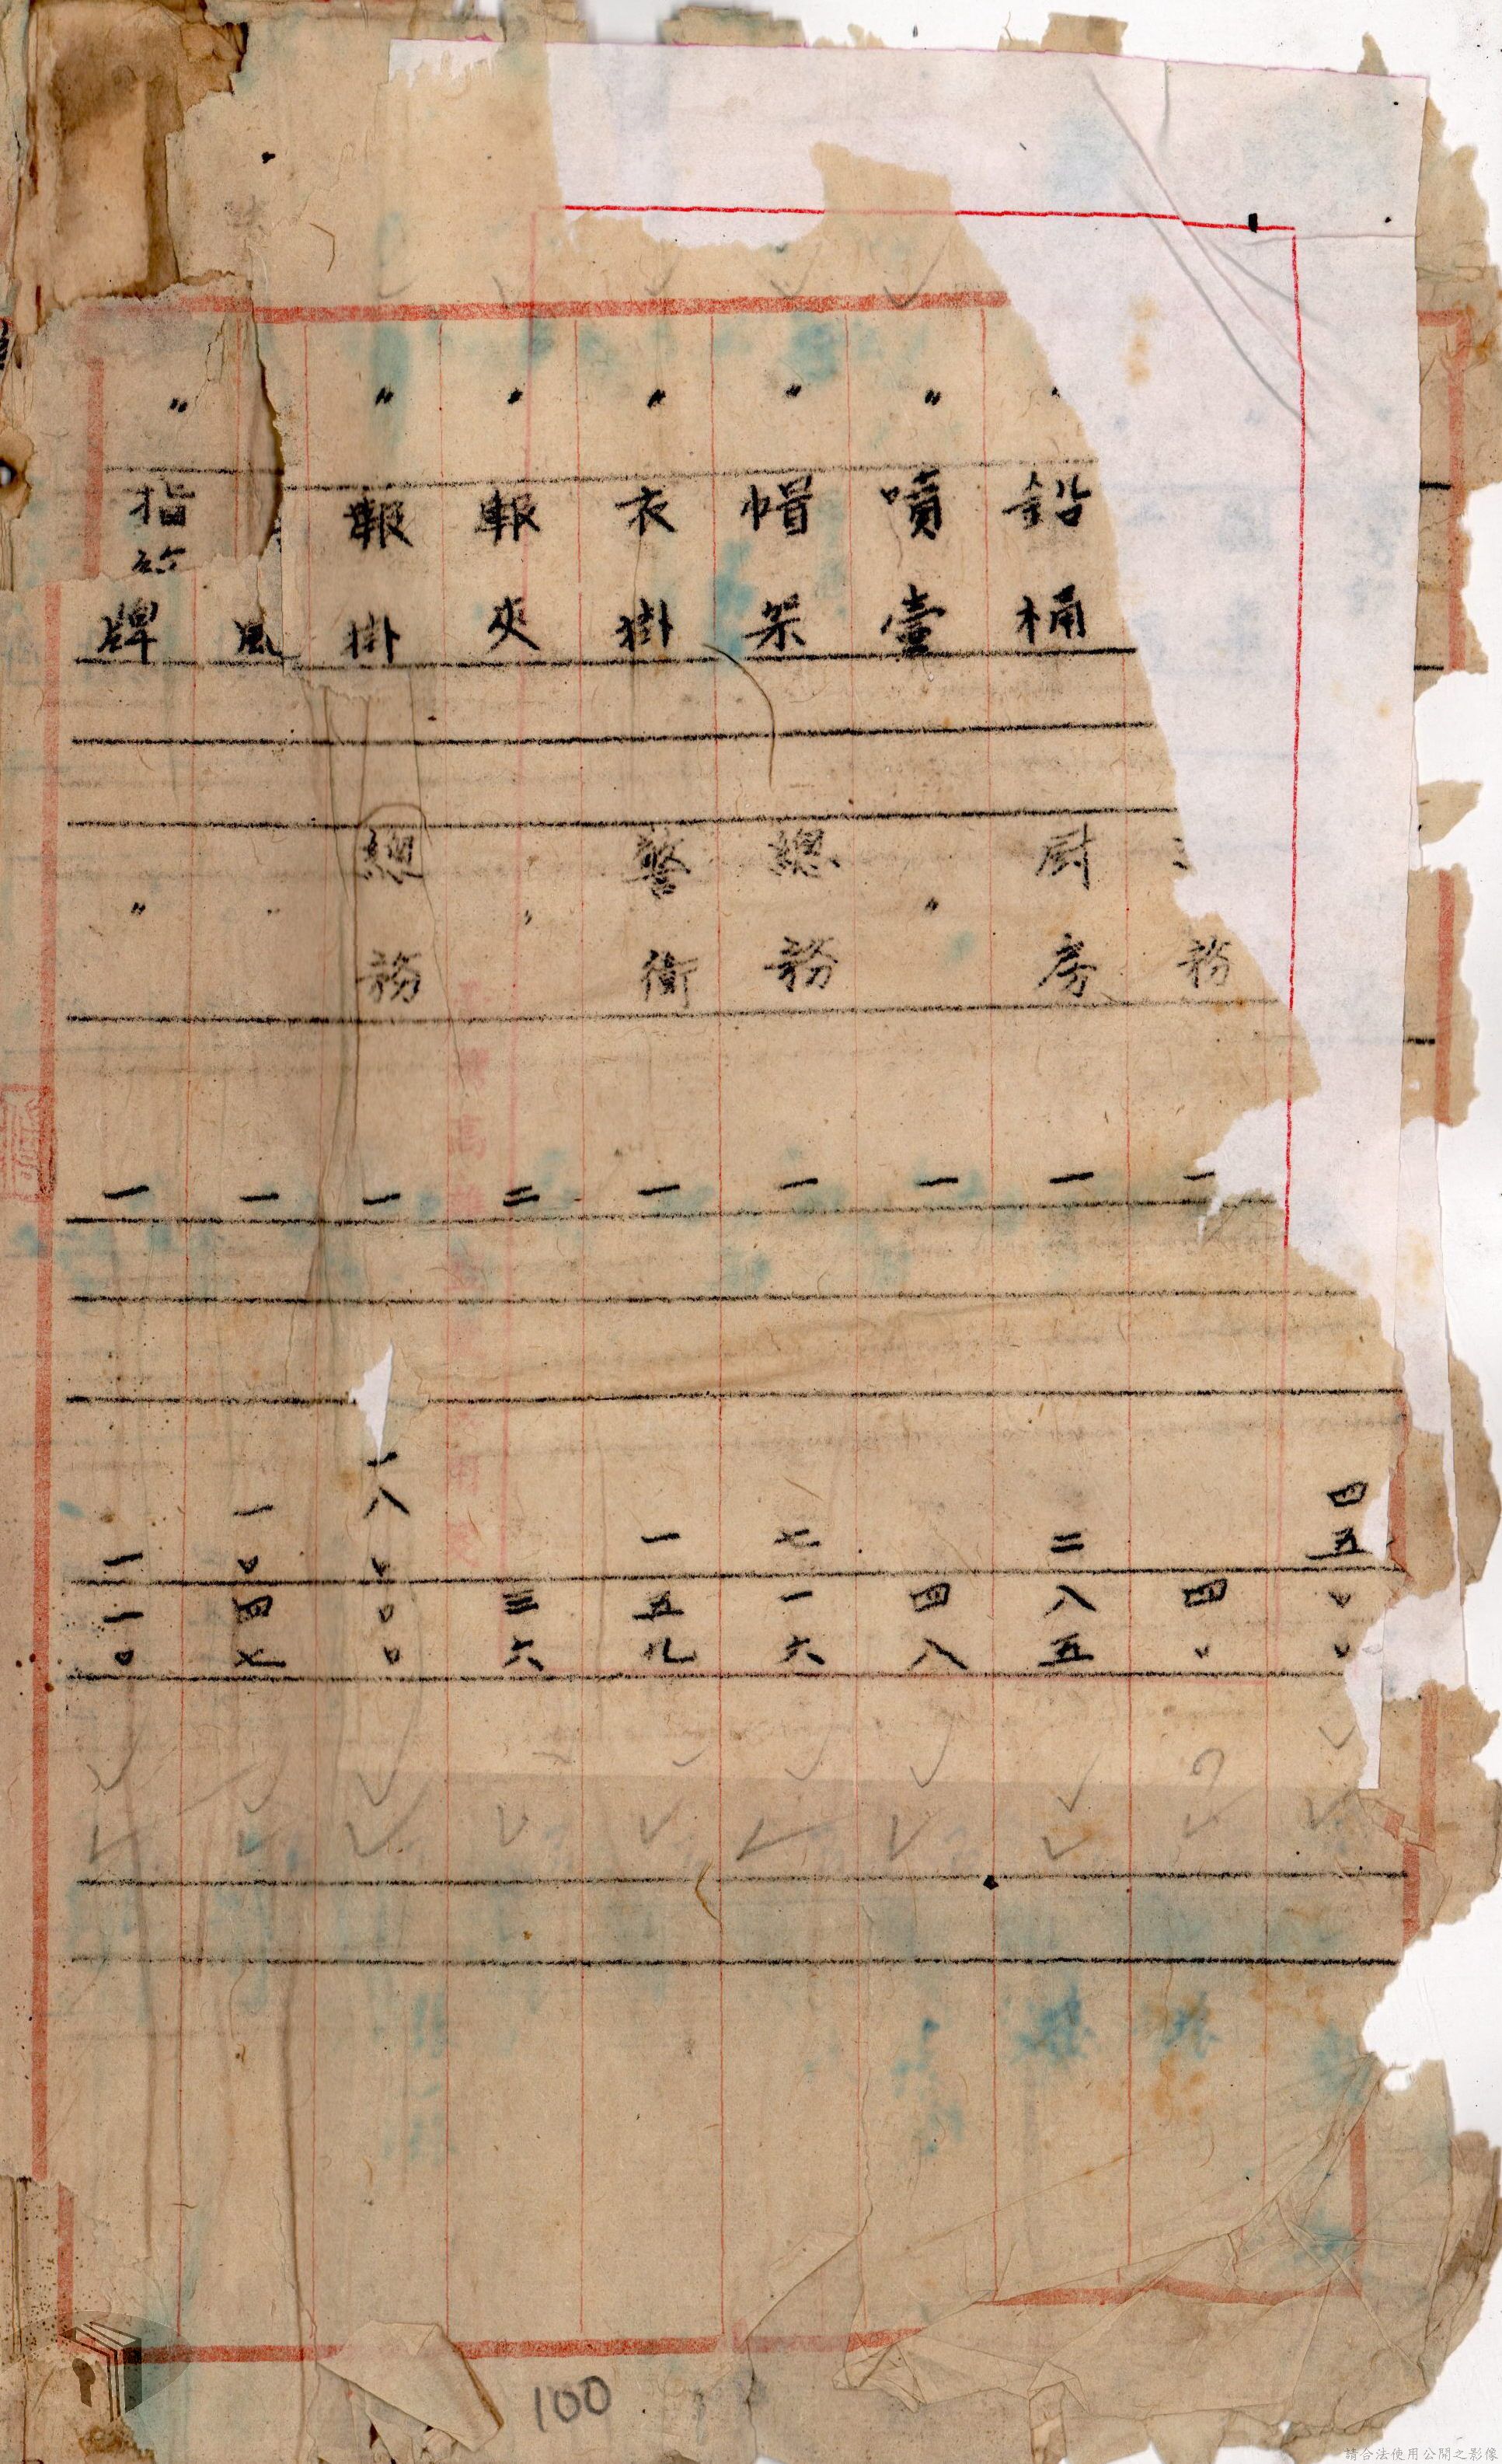 四五〇〇
務 一 四〇
鉛桶 厨房 一 二八五
〃 噴壺 〃 一 四八
〃 帽架 總務 一 七一六
〃 衣掛 警衛 一 一五九
〃 報夾 〃 二 三六
〃 報掛 總務 一 一八〇〇〇
風 〃 一 一〇四七
〃 指 牌 〃 一 一一〇
100
請合法使用公開之影像